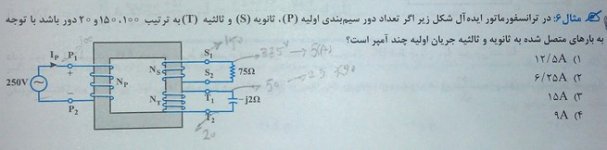 مثال ۶: در ترانسفورماتور ایده‌آل شکل زیر اگر تعداد دور سیم‌بندی اولیه (P)، ثانویه (S) و ثالثیه (T) به ترتیب ۱۰۰، ۱۵۰ و ۲۰ دور باشد با توجه
به بارهای متصل شده به ثانویه و ثالثیه جریان اولیه چند آمپر است؟
۱) ۱۲/۵A
۲) ۶/۲۵A
۳) ۱۵A
۴) ۹A
250V
I_P P₁
+
−
P₂
N_P
N_S
N_T
S₁
S₂
75Ω
T₁
T₂
−j2Ω
150
50
20